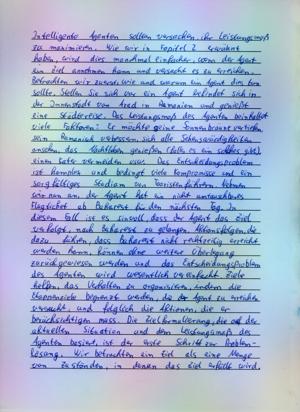 Intelligente Agenten sollen versuchen, ihr Leistungsmaß
zu maximieren. Wie wir in Kapitel 2 erwähnt
haben, wird dies manchmal einfacher, wenn der Agent
ein Ziel annehmen kann und versucht es zu erreichen.
Betrachten wir zuerst, wie und warum ein Agent dies tun
sollte. Stellen Sie sich vor ein Agent befindet sich in
der Innenstadt von Arad in Rumänien und genießt
eine Städtereise. Das Leistungsmaß des Agenten beinhaltet
viele Faktoren: Er möchte seine Sonnenbräune vertiefen
sein Rumänisch verbessern, sich alle Sehenswürdigkeiten
ansehen, das Nachtleben genießen (falls es ein solches gibt),
einen Kater vermeiden usw. Das Entscheidungsproblem
ist komplex und bedingt viele Kompromisse und ein
sorgfältiges Studium von Reiseführern. Nehmen
wir nun an, der Agent hat ein nicht umtauschbares
Flugticket ab Bukarest für den nächsten Tag. In
diesem Fall ist es sinnvoll, dass der Agent das Ziel
verfolgt, nach Bukarest zu gelangen. Aktionsfolgen, die
dazu führen, dass Bukarest nicht rechtzeitig erreicht
werden kann, können ohne weitere Überlegung
zurückgewiesen werden und das Entscheidungsproblem
des Agenten wird wesentlich vereinfacht. Ziele
helfen, das Verhalten zu organisieren, indem die
begrenzt werden, die der Agent zu erreichen
versucht, und folglich die Aktionen, die er
berücksichtigen muss. Die Zielformulierung, die auf der
aktuellen Situation und dem Leistungsmaß des
Agenten basiert, ist der erste Schritt zur Problem-
lösung. Wir betrachten ein Ziel als eine Menge
von Zuständen, in denen das Ziel erfüllt wird.